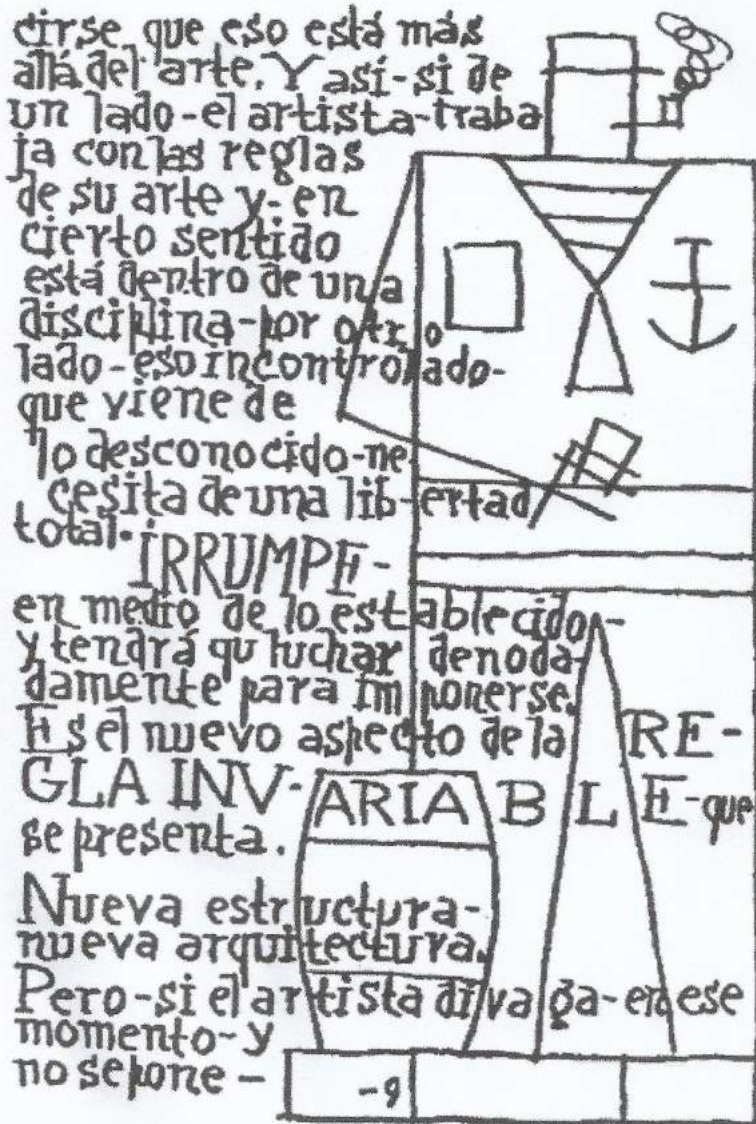 cirse que eso está más
allá del arte. Y así-si de
un lado-el artista-traba
ja con las reglas
de su arte y-en
cierto sentido
está dentro de una
disciplina-por otro
lado-eso incontrolado-
que viene de
lo desconocido-ne
cesita de una libertad
total.
IRRUMPE-
en medio de lo establecido-
y tendrá qu luchar denoda-
damente para imponerse.
Es el nuevo aspecto de la RE-
GLA INV-ARIABLE-que
se presenta.
Nueva estructura-
nueva arquitectura.
Pero-si el artista divaga-en ese
momento-y
no se pone-
-9